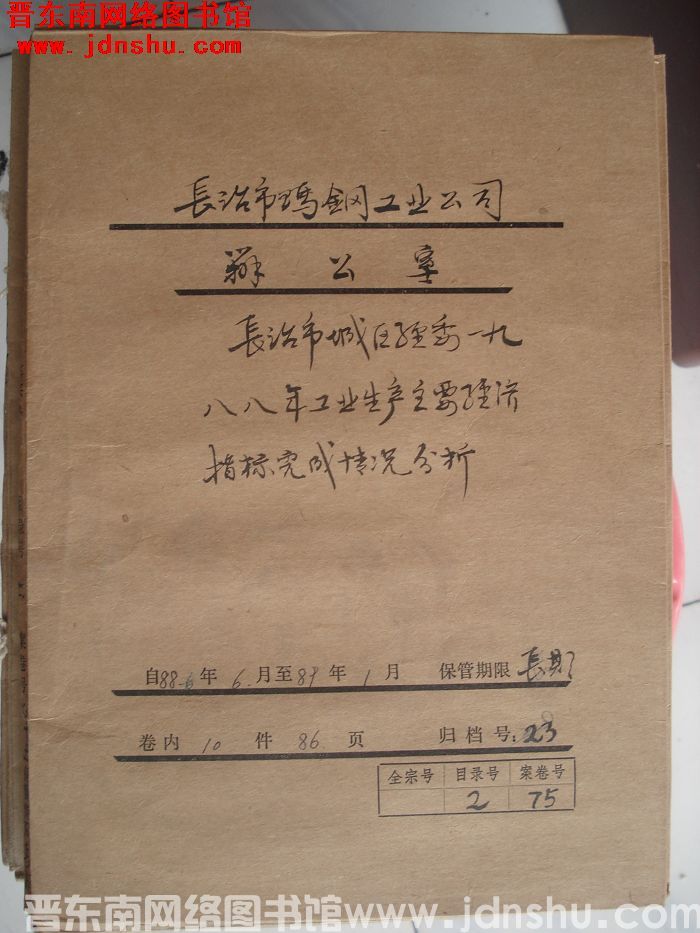 晋东南网络图书馆
www.jdnshu.com
長治市瑪鋼工业公司
辦公室
長治市城区经委一九
八八年工业生产主要经济
指标完成情况分析
自88年6月至89年1月 保管期限 長期
卷内 10 件 86 页 归档号:23
全宗号 目录号 案卷号
2 75
晋东南网络图书馆www.jdnshu.com